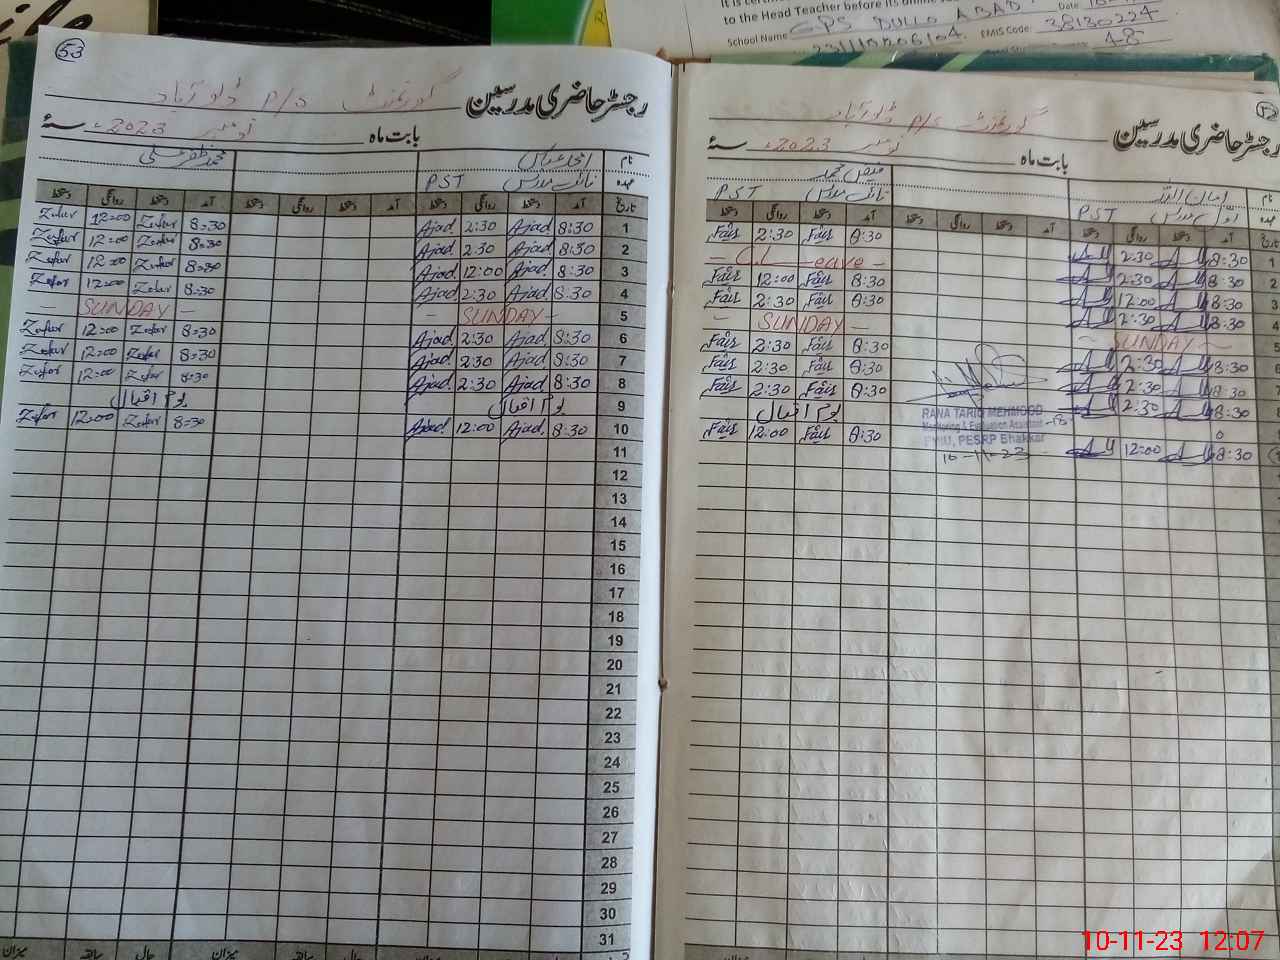 to the Head Teacher before its online
School Name GPS DULLO ABAD
EMIS Code 38130224
48
53
رجسٹر حاضری مدرسین گورنمنٹ P/S ڈلو آباد
بابت ماہ نومبر 2023ء
نام
عہدہ PST نائب مدرس
تاریخ آمد دستخط روانگی دستخط آمد دستخط روانگی دستخط آمد دستخط روانگی دستخط
1 8:30 Ajad 2:30 Ajad 8:30 Zafar 12:00 Zafar
2 8:30 Ajad 2:30 Ajad 8:30 Zafar 12:00 Zafar
3 8:30 Ajad 12:00 Ajad 8:30 Zafar 12:00 Zafar
4 8:30 Ajad 2:30 Ajad 8:30 Zafar 12:00 Zafar
5 SUNDAY SUNDAY
6 8:30 Ajad 2:30 Ajad 8:30 Zafar 12:00 Zafar
7 8:30 Ajad 2:30 Ajad 8:30 Zafar 12:00 Zafar
8 8:30 Ajad 2:30 Ajad 8:30 Zafar 12:00 Zafar
9 یوم اقبال یوم اقبال
10 8:30 Ajad 12:00 Ajad 8:30 Zafar 12:00 Zafar
11
12
13
14
15
16
17
18
19
20
21
22
23
24
25
26
27
28
29
30
31
میزان حال سابقہ میزان حال سابقہ
52
رجسٹر حاضری مدرسین گورنمنٹ P/S ڈلو آباد
بابت ماہ نومبر 2023ء
نام فیض محمد
عہدہ PST اول مدرس PST نائب مدرس
تاریخ آمد دستخط روانگی دستخط آمد دستخط روانگی دستخط آمد دستخط روانگی دستخط
1 8:30 2:30 8:30 Faiz 2:30 Faiz
2 8:30 2:30 C Leave
3 8:30 12:00 8:30 Faiz 12:00 Faiz
4 8:30 2:30 8:30 Faiz 2:30 Faiz
5 SUNDAY SUNDAY
6 8:30 2:30 8:30 Faiz 2:30 Faiz
7 8:30 2:30 8:30 Faiz 2:30 Faiz
8 8:30 2:30 8:30 Faiz 2:30 Faiz
یوم اقبال
8:30 12:00 8:30 Faiz 12:00 Faiz
RANA TARIQ MEHMOOD
Monitoring & Evaluation Assistant -18
PMIU, PESRP Bhakkar
10-11-23
10-11-23 12:07